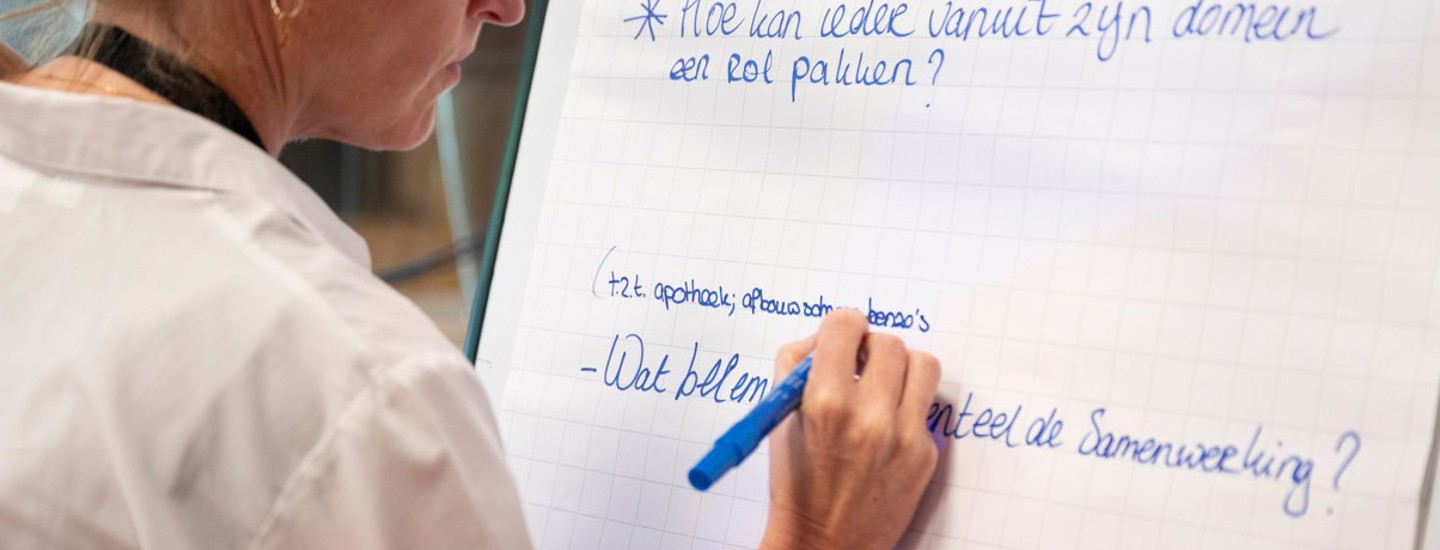 * Hoe kan ieder vanuit zijn domein
een rol pakken?
(t.z.t. apotheek; afbouwschem benzo's
- Wat belem enteel de Samenwerking?